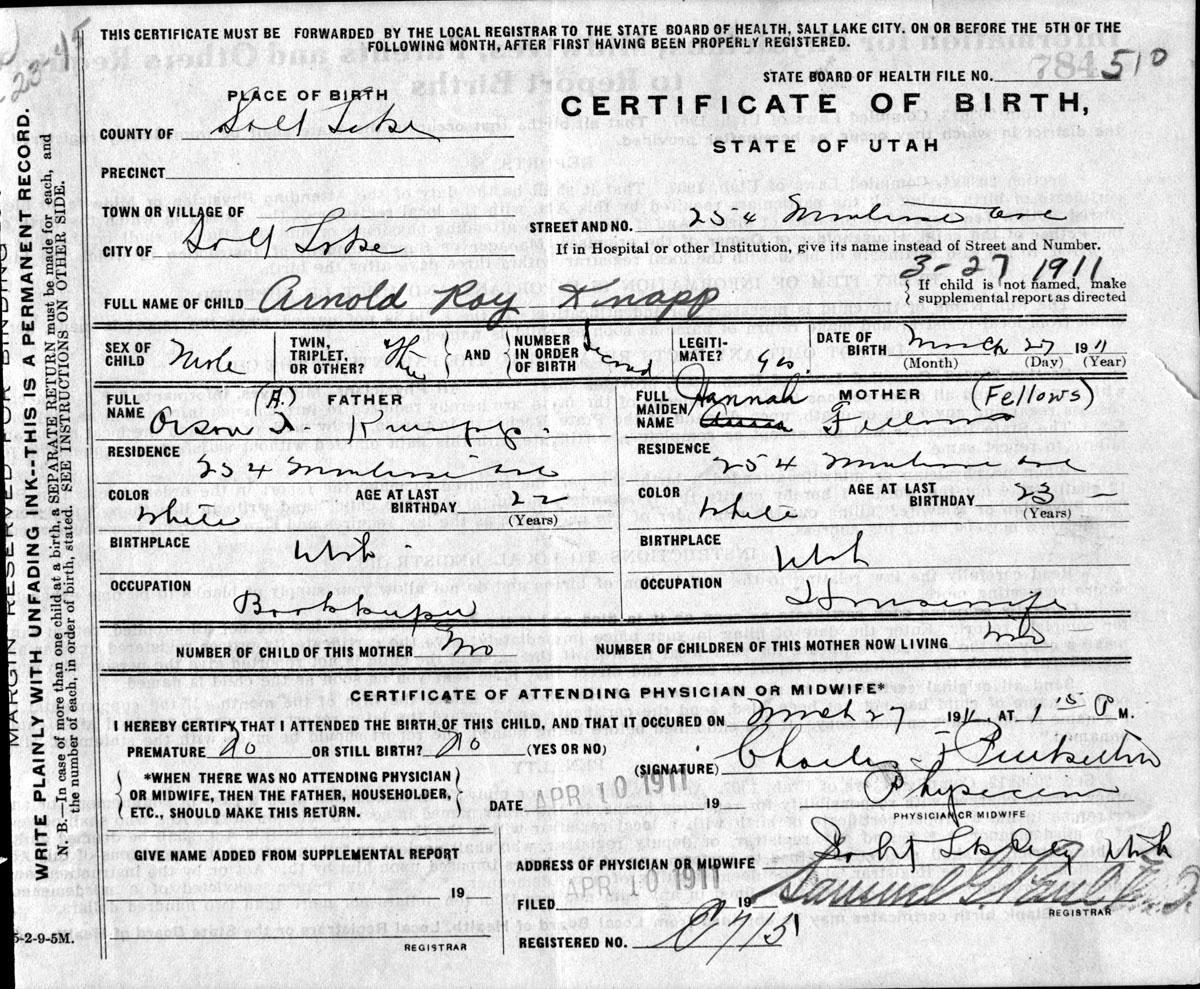 THIS CERTIFICATE MUST BE FORWARDED BY THE LOCAL REGISTRAR TO THE STATE BOARD OF HEALTH, SALT LAKE CITY. ON OR BEFORE THE 5TH OF THE
FOLLOWING MONTH, AFTER FIRST HAVING BEEN PROPERLY REGISTERED.
STATE BOARD OF HEALTH FILE NO. 784 510
PLACE OF BIRTH
CERTIFICATE OF BIRTH,
STATE OF UTAH
COUNTY OF Salt Lake
PRECINCT
TOWN OR VILLAGE OF
STREET AND NO. 254 Ave
CITY OF Salt Lake
If in Hospital or other Institution, give its name instead of Street and Number.
3-27 1911
FULL NAME OF CHILD Arnold Roy Knapp
If child is not named, make
supplemental report as directed
SEX OF CHILD Male
TWIN, TRIPLET, OR OTHER?
AND
NUMBER IN ORDER OF BIRTH
LEGITI-MATE? Yes.
DATE OF BIRTH March 27 1911
(Month) (Day) (Year)
FULL NAME (A.) FATHER
Orson Knapp.
FULL MAIDEN NAME Hannah MOTHER (Fellows)
Fellows
RESIDENCE
254 Ave
RESIDENCE
254 Ave
COLOR White
AGE AT LAST BIRTHDAY 22
(Years)
COLOR White
AGE AT LAST BIRTHDAY 23
(Years)
BIRTHPLACE Utah
BIRTHPLACE Utah
OCCUPATION
Bookkeeper
OCCUPATION
Housewife
NUMBER OF CHILD OF THIS MOTHER
NUMBER OF CHILDREN OF THIS MOTHER NOW LIVING
CERTIFICATE OF ATTENDING PHYSICIAN OR MIDWIFE*
I HEREBY CERTIFY THAT I ATTENDED THE BIRTH OF THIS CHILD, AND THAT IT OCCURED ON March 27 1911 AT 1 15 P M.
PREMATURE No OR STILL BIRTH? No (YES OR NO)
(SIGNATURE) Charles F
*WHEN THERE WAS NO ATTENDING PHYSICIAN
OR MIDWIFE, THEN THE FATHER, HOUSEHOLDER,
ETC., SHOULD MAKE THIS RETURN.
DATE APR 10 1911 19
Physician
PHYSICIAN OR MIDWIFE
GIVE NAME ADDED FROM SUPPLEMENTAL REPORT
19
REGISTRAR
ADDRESS OF PHYSICIAN OR MIDWIFE Salt Lake City Utah
FILED APR 10 1911 19
Samuel G. Paul
REGISTRAR
REGISTERED NO.
5-2-9-5M.
MARGIN RESERVED FOR BINDING
WRITE PLAINLY WITH UNFADING INK--THIS IS A PERMANENT RECORD.
N. B.—In case of more than one child at a birth, a SEPARATE RETURN must be made for each, and
the number of each, in order of birth, stated. SEE INSTRUCTIONS ON OTHER SIDE.